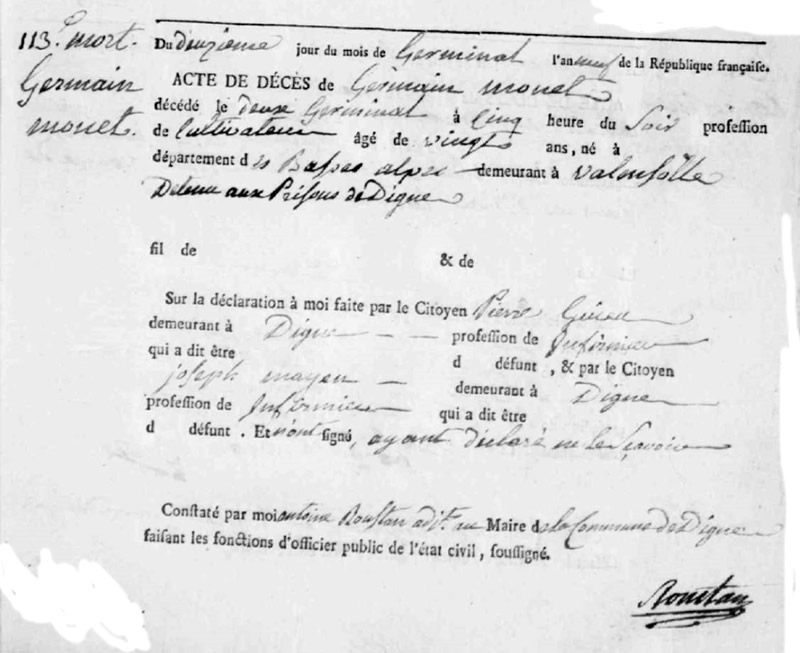 113.e mort.
Germain
monet.
Du deuzieme jour du mois de Germinal l'an neuf de la République française.
ACTE DE DÉCÈS de Germain monet
décédé le deux Germinal à Cinq heure du Soir profession
de Cultivateur âgé de vingt ans, né à
département des Basses alpes demeurant à valensolle
Detenu aux Prisons de Digne
fil de & de
Sur la déclaration à moi faite par le Citoyen Pierre
demeurant à Digne profession de Infirmier
qui a dit être d défunt, & par le Citoyen
joseph mayen demeurant à Digne
profession de Infirmier qui a dit être
d défunt. Et n'ont signé, ayant déclaré ne le Sçavoir
Constaté par moi antoine Roustan adjt. au Maire de la Commune de Digne
faisant les fonctions d'officier public de l'état civil, soussigné.
Roustan